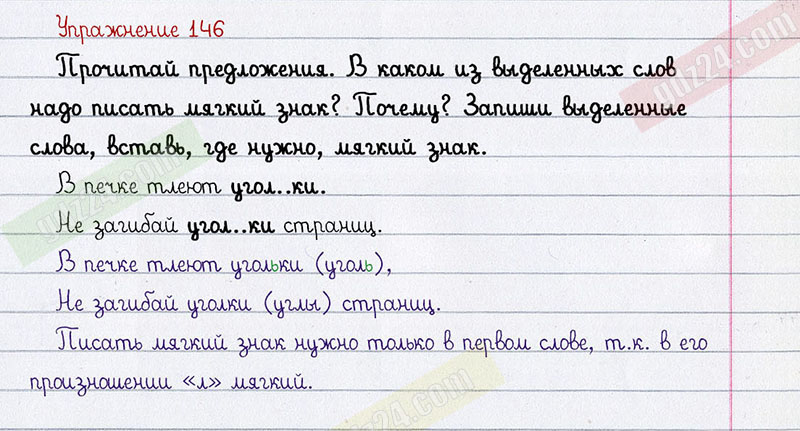 Упражнение 146
Прочитай предложения. В каком из выделенных слов
надо писать мягкий знак? Почему? Запиши выделенные
слова, вставь, где нужно, мягкий знак.
В печке тлеют угол..ки.
Не загибай угол..ки страниц.
В печке тлеют угольки (уголь),
Не загибай уголки (углы) страниц.
Писать мягкий знак нужно только в первом слове, т.к. в его
произношении «л» мягкий.
gdz24.com
gdz24.com
gdz24.com